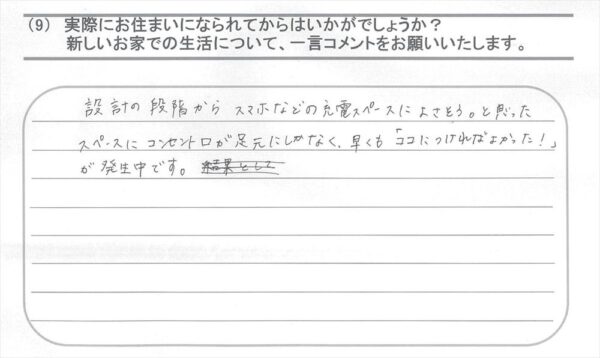 (9) 実際にお住まいになられてからはいかがでしょうか？
新しいお家での生活について、一言コメントをお願いいたします。
設計の段階から スマホなどの充電スペースによさそう。と思った
スペースにコンセント口が足元にしかなく、早くも「ココにつければよかった！」
が発生中です。結果として